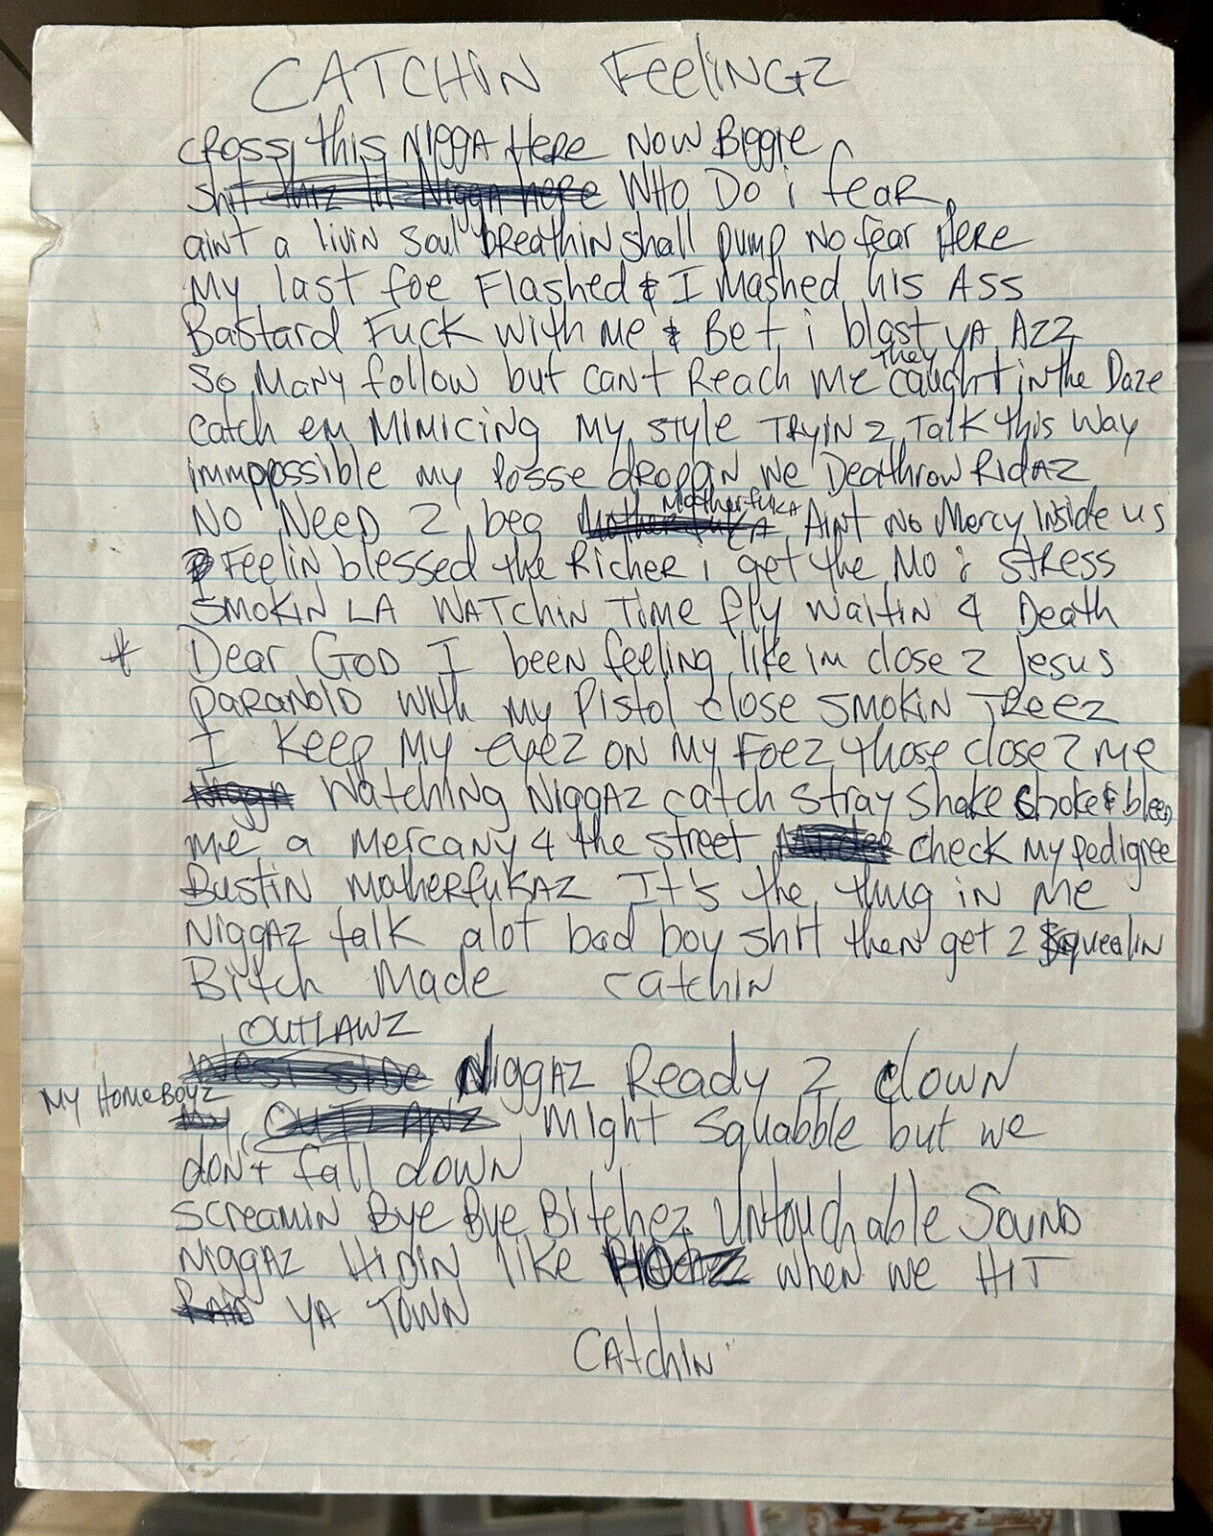 CATCHIN FeeliNGZ
CROSS this NIggA Here NOW BIggIe
Shit thiz lil NIggA here WHO DO i feaR
aint a livin soul breathin shall pump No fear Here
My last foe Flashed & I Mashed his ASS
Bastard Fuck with Me & Bet i blast yA AZZ
So Many follow but can't Reach Me they caught in the Daze
Catch em MiMiCiNg My style TRyiN 2 Talk this Way
immpossible my posse droppin we Deathrow RidAZ
No NeeD 2 beg MotherfuKA MotherfuKA Aint No Mercy Inside us
Feelin blessed the Richer i get the Mo i stRess
SMoKiN LA WATchiN Time fly waitin 4 Death
* Dear GoD I been feeling like im close 2 Jesus
PaRANOID with my Pistol close SMoKiN TReez
I Keep My eyez oN My Foez those close 2 me
NiggA Watching NiggAZ catch stray shake choke & bleed
me a Mercany 4 the street Murder check My pedigree
Bustin MotheRfuKAZ It's the thug in Me
NiggAZ talk alot bad boy shit then get 2 squealin
Bitch Made catchiN
OUTLAWZ
West side NiggAZ Ready 2 clown
My HomeBoyz
My OUTLAWZ Might squabble but we
don't fall down
Screamin Bye Bye Bitchez Untouchable Sound
NiggAZ HiDiN like when we HiT
RAID yA TOWN
CAtchiN